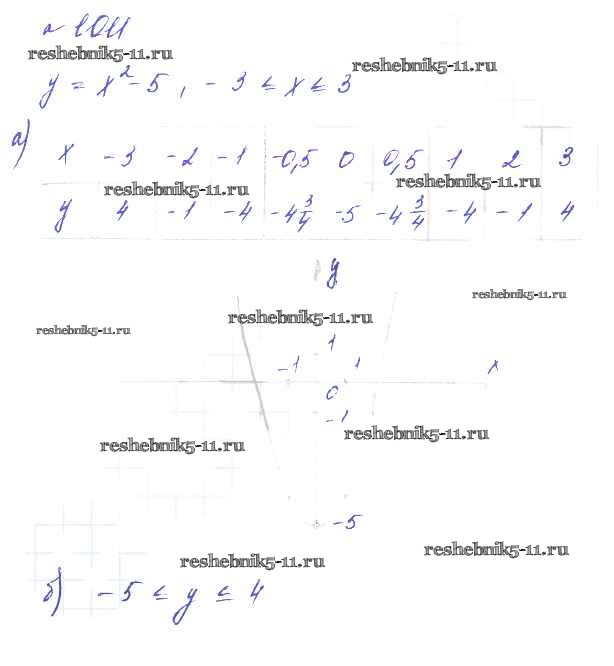 № 1011
reshebnik5-11.ru
reshebnik5-11.ru
y = x² - 5, -3 ≤ x ≤ 3
а)
x -3 -2 -1 -0,5 0 0,5 1 2 3
reshebnik5-11.ru
reshebnik5-11.ru
y 4 -1 -4 -4 3/4 -5 -4 3/4 -4 -1 4
y
reshebnik5-11.ru
reshebnik5-11.ru
reshebnik5-11.ru
1
-1 1 x
0
-1
reshebnik5-11.ru
reshebnik5-11.ru
-5
reshebnik5-11.ru
reshebnik5-11.ru
б) -5 ≤ y ≤ 4